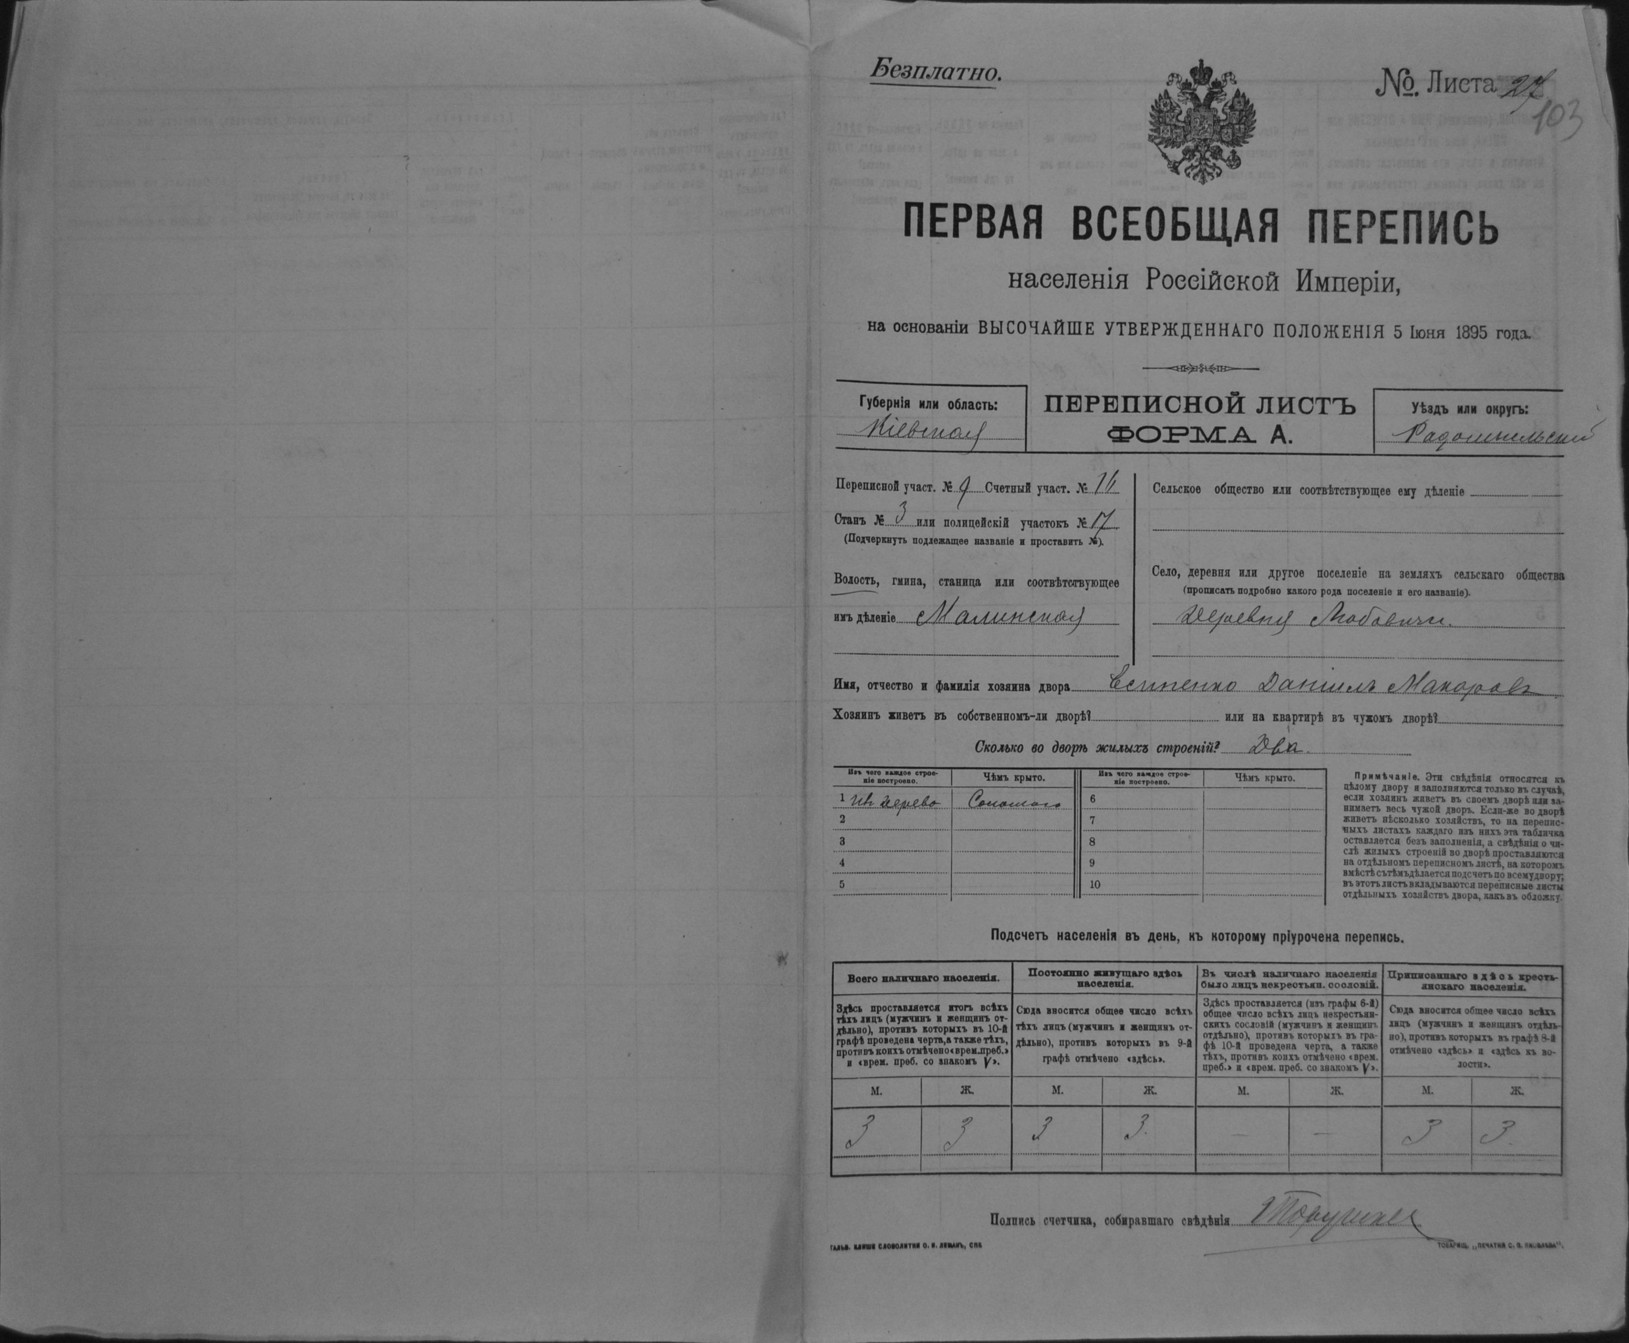 Безплатно.
№. Листа 27
103
ПЕРВАЯ ВСЕОБЩАЯ ПЕРЕПИСЬ
населенія Россійской Имперіи,
на основаніи ВЫСОЧАЙШЕ УТВЕРЖДЕННАГО ПОЛОЖЕНІЯ 5 Іюня 1895 года.
Губернія или область:
Кіевская
ПЕРЕПИСНОЙ ЛИСТЪ
ФОРМА А.
Уѣздъ или округъ:
Радомысльскій
Переписной участ. № 9 Счетный участ. № 16
Станъ № 3 или полицейскій участокъ № 17
(Подчеркнуть подлежащее названіе и проставить №).
Волость, гмина, станица или соотвѣтствующее
имъ дѣленіе Малинская
Сельское общество или соотвѣтствующее ему дѣленіе
Село, деревня или другое поселеніе на земляхъ сельскаго общества
(прописать подробно какого рода поселеніе и его названіе).
Деревня Любовичи.
Имя, отчество и фамилія хозяина двора Есипенко Даніилъ Макаровъ
Хозяинъ живетъ въ собственномъ-ли дворѣ? или на квартирѣ въ чужомъ дворѣ?
Сколько во дворѣ жилыхъ строеній? Два.
Изъ чего каждое строе-
ніе построено.
Чѣмъ крыто.
Изъ чего каждое строе-
ніе построено.
Чѣмъ крыто.
1 изъ дерево Соломою 6
2 7
3 8
4 9
5 10
Примѣчаніе. Эти свѣдѣнія относятся къ
цѣлому двору и заполняются только въ случаѣ,
если хозяинъ живетъ въ своемъ дворѣ или за-
нимаетъ весь чужой дворъ. Если-же во дворѣ
живетъ нѣсколько хозяйствъ, то на перепис-
ныхъ листахъ каждаго изъ нихъ эта табличка
оставляется безъ заполненія, а свѣдѣнія о чи-
слѣ жилыхъ строеній во дворѣ проставляются
на отдѣльномъ переписномъ листѣ, на которомъ
вмѣстѣ съ тѣмъ дѣлается подсчетъ по всему двору;
въ этотъ листъ вкладываются переписные листы
отдѣльныхъ хозяйствъ двора, какъ въ обложку.
Подсчетъ населенія въ день, къ которому пріурочена перепись.
Всего наличнаго населенія.
Здѣсь проставляется итогъ всѣхъ
тѣхъ лицъ (мужчинъ и женщинъ от-
дѣльно), противъ которыхъ въ 10-й
графѣ проведена черта, а также тѣхъ,
противъ коихъ отмѣчено «врем. преб.»
и «врем. преб. со знакомъ V».
Постоянно живущаго здѣсь
населенія.
Сюда вносится общее число всѣхъ
тѣхъ лицъ (мужчинъ и женщинъ от-
дѣльно), противъ которыхъ въ 9-й
графѣ отмѣчено «здѣсь».
Въ числѣ наличнаго населенія
было лицъ некрестьян. сословій.
Здѣсь проставляется (изъ графы 6-й)
общее число всѣхъ лицъ некрестьян-
скихъ сословій (мужчинъ и женщинъ
отдѣльно), противъ которыхъ въ гра-
фѣ 10-й проведена черта, а также
тѣхъ, противъ коихъ отмѣчено «врем.
преб.» и «врем. преб. со знакомъ V».
Приписаннаго здѣсь кресть-
янскаго населенія.
Сюда вносится общее число всѣхъ
лицъ (мужчинъ и женщинъ отдѣль-
но), противъ которыхъ въ графѣ 8-й
отмѣчено «здѣсь» и «здѣсь къ во-
лости».
М. Ж. М. Ж. М. Ж. М. Ж.
3 3 3 3. — — 3 3.
Подпись счетчика, собиравшаго свѣдѣнія
ГАЛЬВ. КЛИШЕ СЛОВОЛИТНИ О. И. ЛЕМАНЪ, СПБ